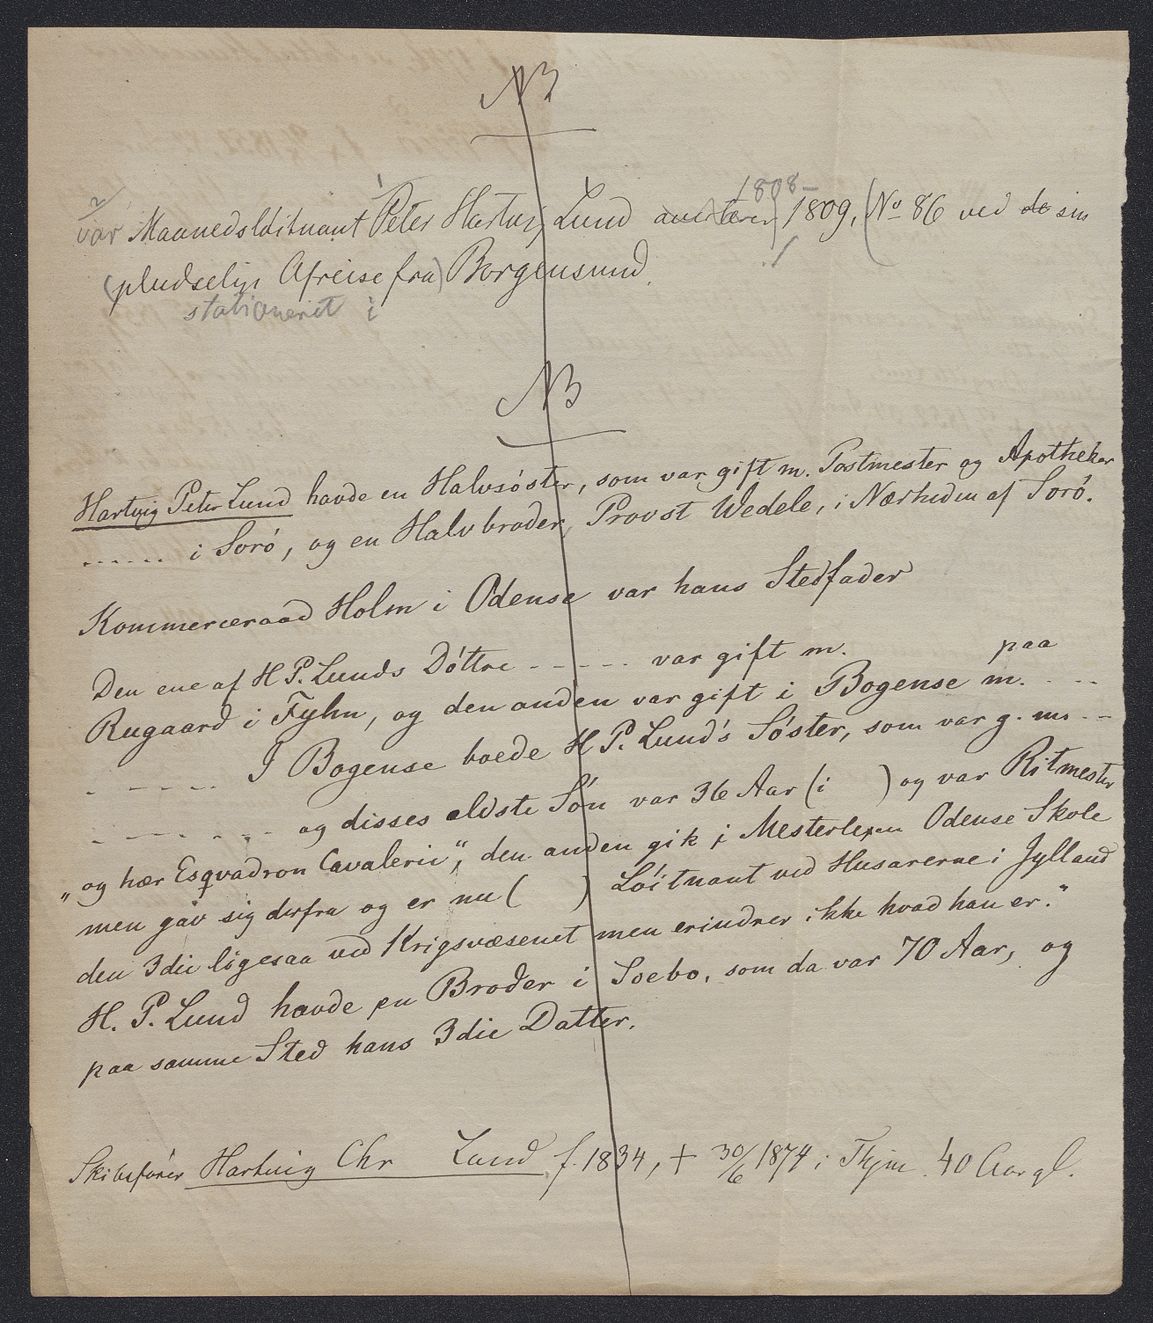 NB
1808–
2 1
var Maanedsløitnant Peter Hartvig Lund 1809, (No 86 ved de sin
(pludselige Afreise fra) Borgensund.
stationeret i
NB
Hartvig Peter Lund havde en Halvsøster, som var gift m. Postmester og Apotheker
...... i Sorø, og en Halvbroder, Provst Wedele, i Nærheden af Sorø.
Kommerceraad Holm i Odense var hans Stedfader
Den ene af H P. Lunds Døttre ----- var gift m. paa
Rugaard i Fyhn, og den anden var gift i Bogense m. ----
------ I Bogense boede H P. Lund's Søster, som var g. m. --
------- og disses eldste Søn var 36 Aar (i ) og var Ritmester
„og hær Esqvadron Cavalerie", den anden gik i Mesterlexen Odense Skole
men gav sig derfra og er nu ( ) Løitnant ved Husarerne i Jylland
den 3die ligesaa ved Krigsvæsenet men erindrer ikke hvad han er."
H. P. Lund havde en Broder i Soebo, som da var 70 Aar, og
paa samme Sted hans 3die Datter.
Skibsfører Hartvig Chr Lund f. 1834, + 30/6 1874 i Thjm 40 Aar gl.